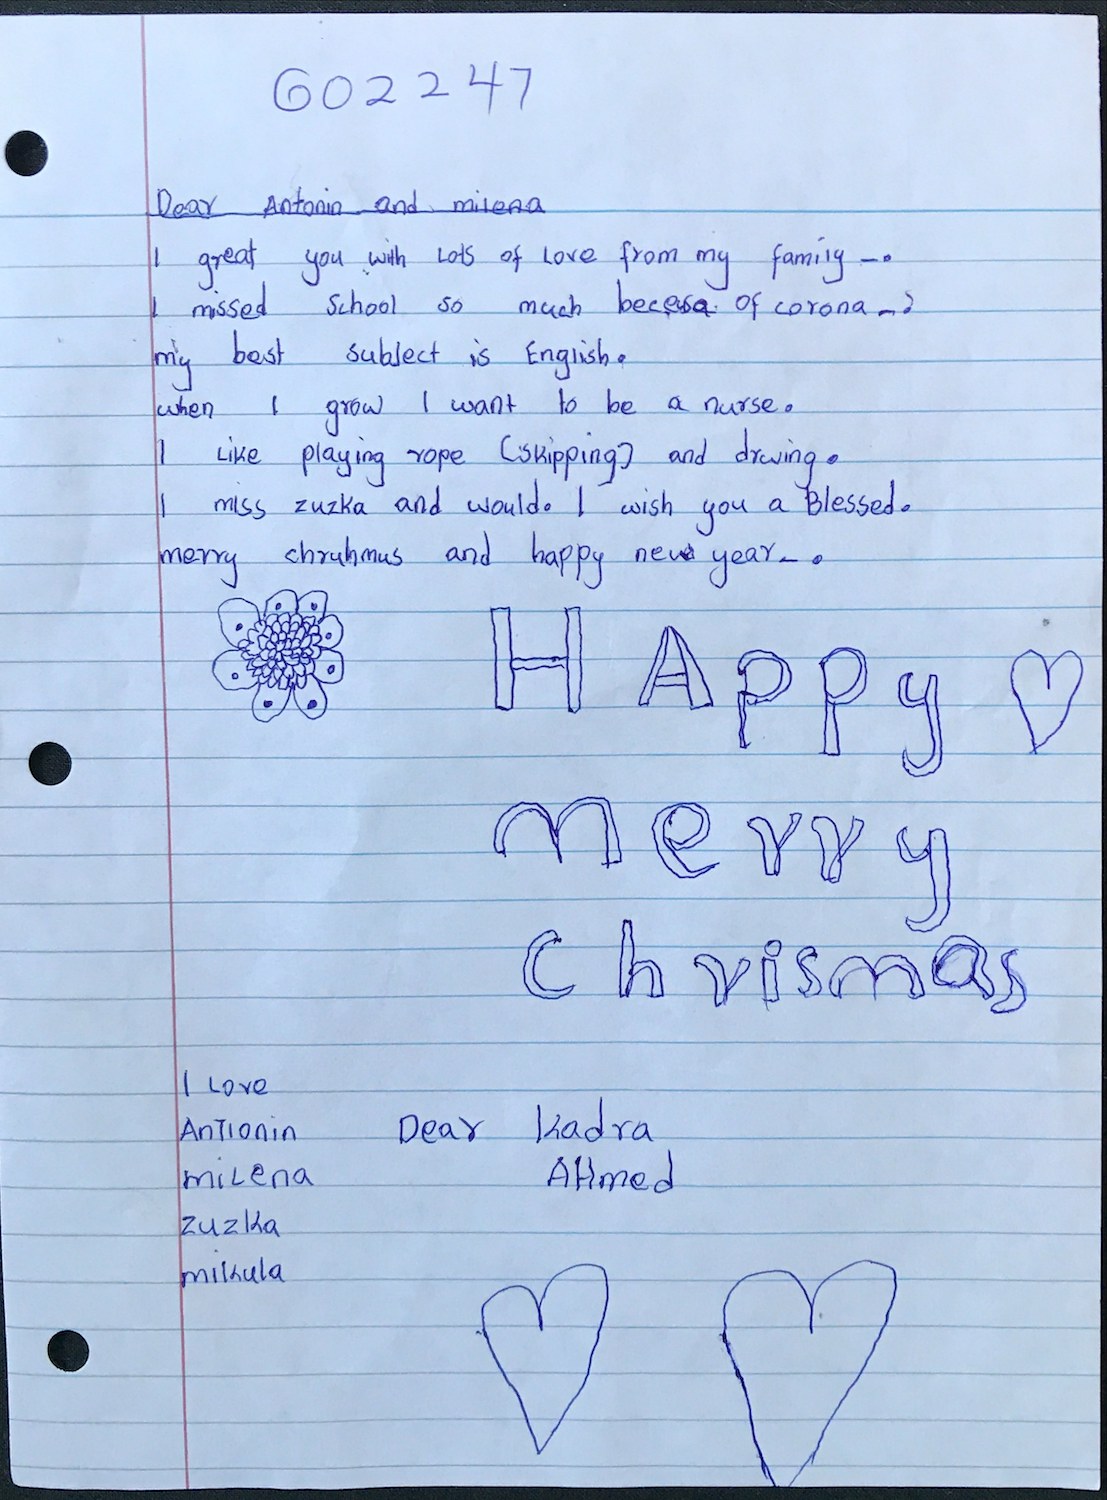 602247
Dear Antonin and milena
I great you with Lots of Love from my family -.
I missed School so much becesa of corona -.
my best sublect is English.
when I grow I want to be a nurse.
I Like playing rope (skipping) and drwing.
I miss zuzka and would. I wish you a Blessed.
merry chruhmus and happy new year-.
HAppy
merry
Chrismas
I Love
Antionin Dear Kadra
miLena AHmed
zuzka
mikula